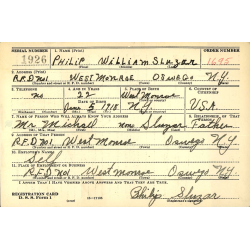 SERIAL NUMBER 1. NAME (Print) ORDER NUMBER
1926 PHILIP WILLIAM SLUZAR 1695
2. ADDRESS (Print)
R.F.D. No1 WEST MONROE OSWEGO N.Y.
3. TELEPHONE 4. AGE IN YEARS 5. PLACE OF BIRTH 6. COUNTRY OF CITIZENSHIP
no 22 West Monroe
DATE OF BIRTH
1918 N.Y. USA
7. NAME OF PERSON WHO WILL ALWAYS KNOW YOUR ADDRESS 8. RELATIONSHIP OF THAT PERSON
Mr Michael Sluzar Father
9. ADDRESS OF THAT PERSON
R.F.D. No1 West Monroe Oswego N.Y.
10. EMPLOYER'S NAME
Self
11. PLACE OF EMPLOYMENT OR BUSINESS
R.F.D. No1 West Monroe Oswego N.Y.
I AFFIRM THAT I HAVE VERIFIED ABOVE ANSWERS AND THAT THEY ARE TRUE.
REGISTRATION CARD
D. S. S. FORM 1
Philip Sluzar